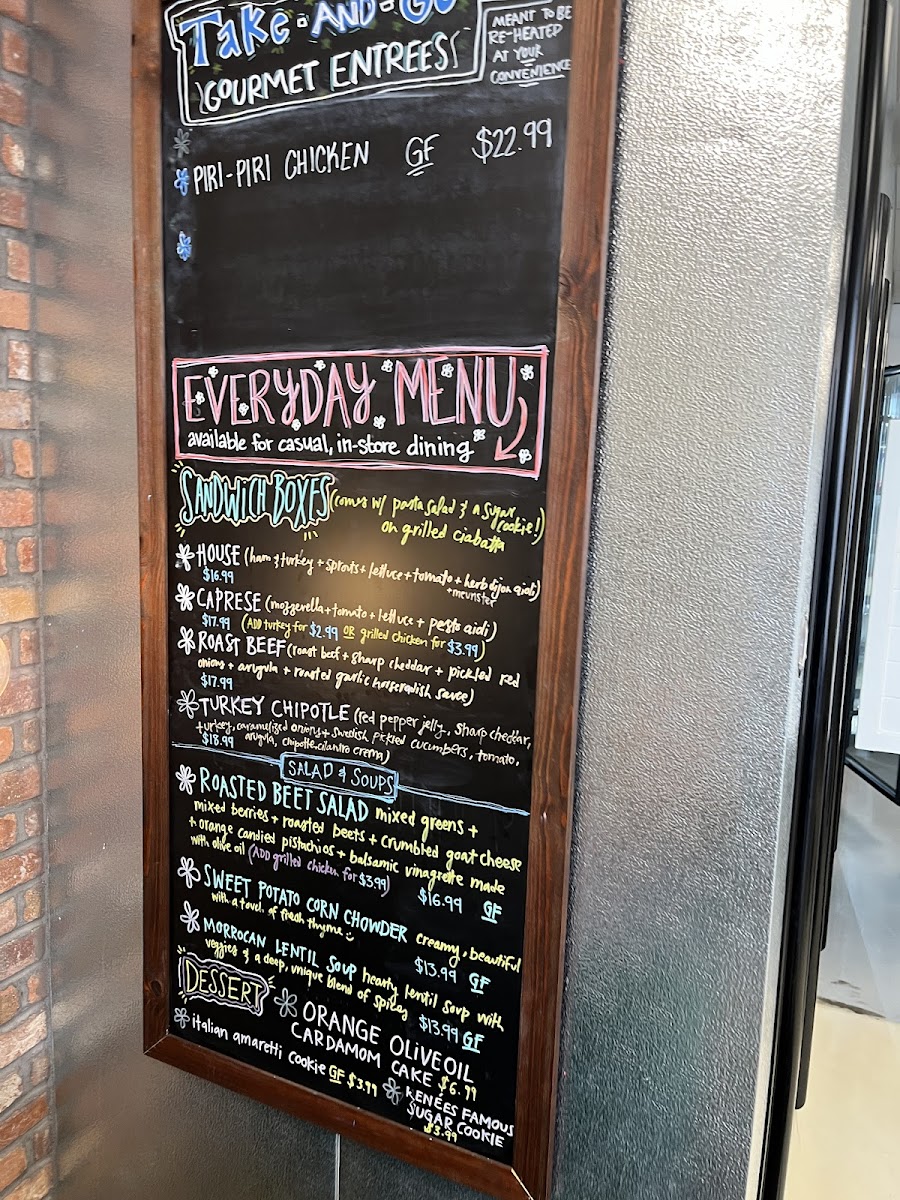 Take-AND-Go
GOURMET ENTREES
MEANT TO BE
RE-HEATED
AT YOUR
CONVENIENCE
PIRI-PIRI CHICKEN GF $22.99
EVERYDAY MENU
available for casual, in-store dining
SANDWICH BOXES (comes w/ pasta salad & a sugar
cookie!)
on grilled ciabatta
HOUSE (ham & turkey + sprouts + lettuce + tomato + herb dijon aioli)
$16.99 + meunster
CAPRESE (mozzerella + tomato + lettuce + pesto aioli)
$17.99 (ADD turkey for $2.99 OR grilled chicken for $3.99)
ROAST BEEF (roast beef + sharp cheddar + pickled red
onions + arugula + roasted garlic horseradish sauce)
$17.99
TURKEY CHIPOTLE (red pepper jelly, sharp cheddar,
+ turkey, caramelized onions + swedish pickled cucumbers, tomato,
$18.99 arugula, chipotle-cilantro crema)
SALAD & SOUPS
ROASTED BEET SALAD mixed greens +
mixed berries + roasted beets + crumbled goat cheese
+ orange candied pistachios + balsamic vinagrette made
with olive oil (ADD grilled chicken for $3.99) $16.99 GF
SWEET POTATO CORN CHOWDER creamy, beautiful
with a touch of fresh thyme $13.99 GF
MORROCAN LENTIL SOUP hearty lentil soup with
veggies & a deep, unique blend of spices $13.99 GF
DESSERT
ORANGE OLIVE OIL
CARDAMOM CAKE $6.99
italian amaretti cookie GF $3.99
RENÉES FAMOUS
SUGAR COOKIE
$3.99